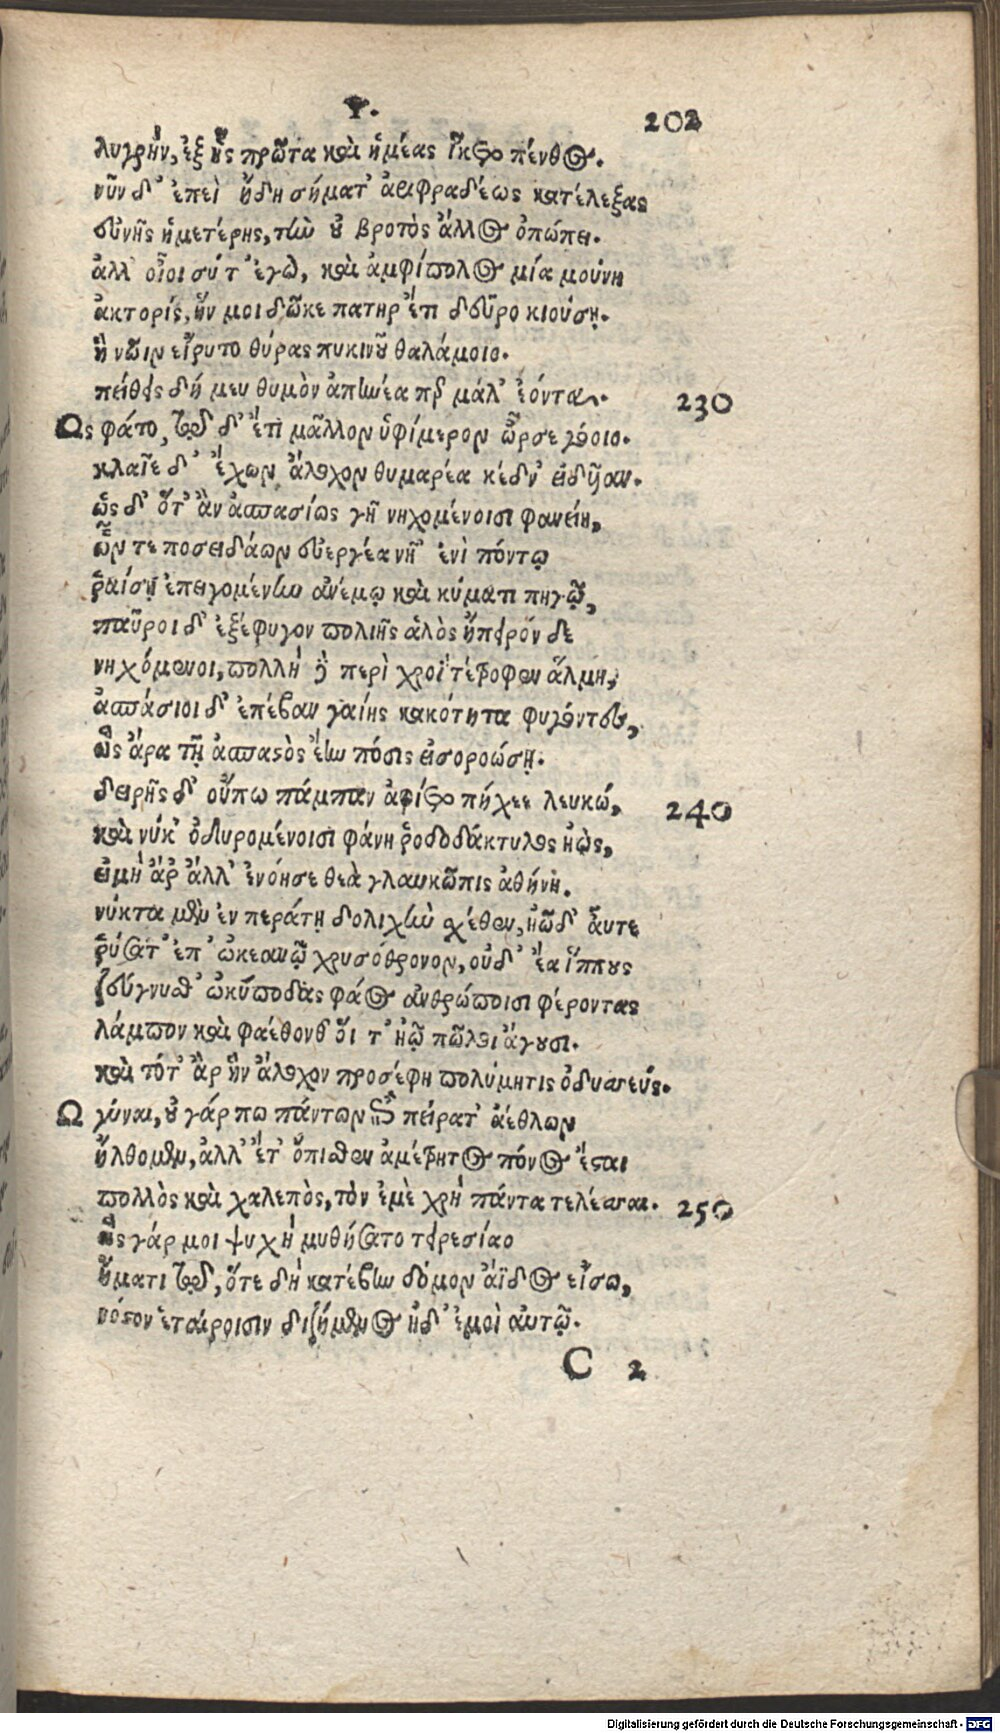 Ψ. 202
λυγρὴν, ἐξ ἧς πρῶτα καὶ ἡμέας ἵκετο πένθος.
νῦν δ' ἐπεὶ ἤδη σήματ' ἀριφραδέως κατέλεξας
εὐνῆς ἡμετέρης, τὴν οὐ βροτὸς ἄλλος ὀπώπει.
ἀλλ' οἶοι σύ τ' ἐγὼ, καὶ ἀμφίπολος μία μούνη
ἀκτορίς, ἥν μοι δῶκε πατὴρ ἔτι δεῦρο κιούσῃ.
ἣ νῶιν εἴρυτο θύρας πυκινοῦ θαλάμοιο.
πείθεις δή μευ θυμὸν ἀπηνέα περ μάλ' ἐόντα. 230
Ως φάτο, τῷ δ' ἔτι μᾶλλον ὑφίμερον ὦρσε γόοιο.
κλαῖε δ' ἔχων ἄλοχον θυμαρέα κέδν' εἰδυῖαν.
ὡς δ' ὅτ' ἂν ἀσπασίως γῆ νηχομένοισι φανείη,
ὧν τε ποσειδάων εὐεργέα νῆ' ἐνὶ πόντῳ
ῥαίσῃ ἐπειγομένην ἀνέμῳ καὶ κύματι πηγῷ,
παῦροι δ' ἐξέφυγον πολιῆς ἁλὸς ἤπειρόν δε
νηχόμενοι, πολλὴ δὲ περὶ χροῒ τέτροφεν ἅλμη,
ἀσπάσιοι δ' ἐπέβαν γαίης κακότητα φυγόντες,
ὣς ἄρα τῇ ἀσπαστὸς ἔην πόσις εἰσοροώσῃ.
δειρῆς δ' οὔπω πάμπαν ἀφίετο πήχεε λευκώ, 240
καὶ νύκ' ὀδυρομένοισι φάνη ῥοδοδάκτυλος ἠὼς,
εἰ μὴ ἄρ' ἄλλ' ἐνόησε θεὰ γλαυκῶπις ἀθήνη.
νύκτα μὲν ἐν περάτῃ δολιχὴν σχέθεν, ἠῶ δ' αὖτε
ῥύσατ' ἐπ' ὠκεανῷ χρυσόθρονον, οὐδ' ἔα ἵππους
ζεύγνυσθ' ὠκύποδας φάος ἀνθρώποισι φέροντας
λάμπον καὶ φαέθονθ' οἵ τ' ἠῶ πῶλοι ἄγουσι.
καὶ τότ' ἂρ ἣν ἄλοχον προσέφη πολύμητις ὀδυσσεύς.
Ω γύναι, οὐ γάρ πω πάντων ἐπὶ πείρατ' ἀέθλων
ἤλθομεν, ἀλλ' ἔτ' ὄπισθεν ἀμέτρητος πόνος ἔσται
πολλὸς καὶ χαλεπὸς, τὸν ἐμὲ χρὴ πάντα τελέσσαι. 250
ὣς γάρ μοι ψυχὴ μυθήσατο τειρεσίαο
ἤματι τῷ, ὅτε δὴ κατέβην δόμον ἄϊδος εἴσω,
νόστον ἑταίροισιν διζήμενος ἠδ' ἐμοὶ αὐτῷ.
C 2
Digitalisierung gefördert durch die Deutsche Forschungsgemeinschaft - DFG